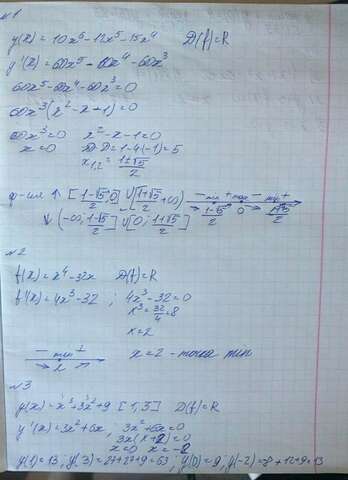 №1
y(x) = 10x⁶ - 12x⁵ - 15x⁴ D(f)=R
y'(x) = 60x⁵ - 60x⁴ - 60x³
60x⁵ - 60x⁴ - 60x³ = 0
60x³(x² - x + 1) = 0
60x³ = 0 x² - x - 1 = 0
x = 0 D = 1 - 4(-1) = 5
x₁,₂ = (1±√5)/2
ф-ия ↑ [(1-√5)/2; 0] ∪ [(1+√5)/2; +∞) − min + max − min +
↓ (-∞; (1-√5)/2] ∪ [0; (1+√5)/2] (1-√5)/2 0 (1+√5)/2
№2
f(x) = x⁴ - 32x D(f)=R
f'(x) = 4x³ - 32 ; 4x³ - 32 = 0
x³ = 32/4 = 8
x = 2
− min + x = 2 - точка min
2
№3
y(x) = x³ + 3x² + 9 [1, 3] D(f)=R
y'(x) = 3x² + 6x, 3x² + 6x = 0
3x(x + 2) = 0
x = 0 x = -2
y(1) = 13; y(3) = 27 + 27 + 9 = 63; y(0) = 9; y(-2) = -8 + 12 + 9 = 13